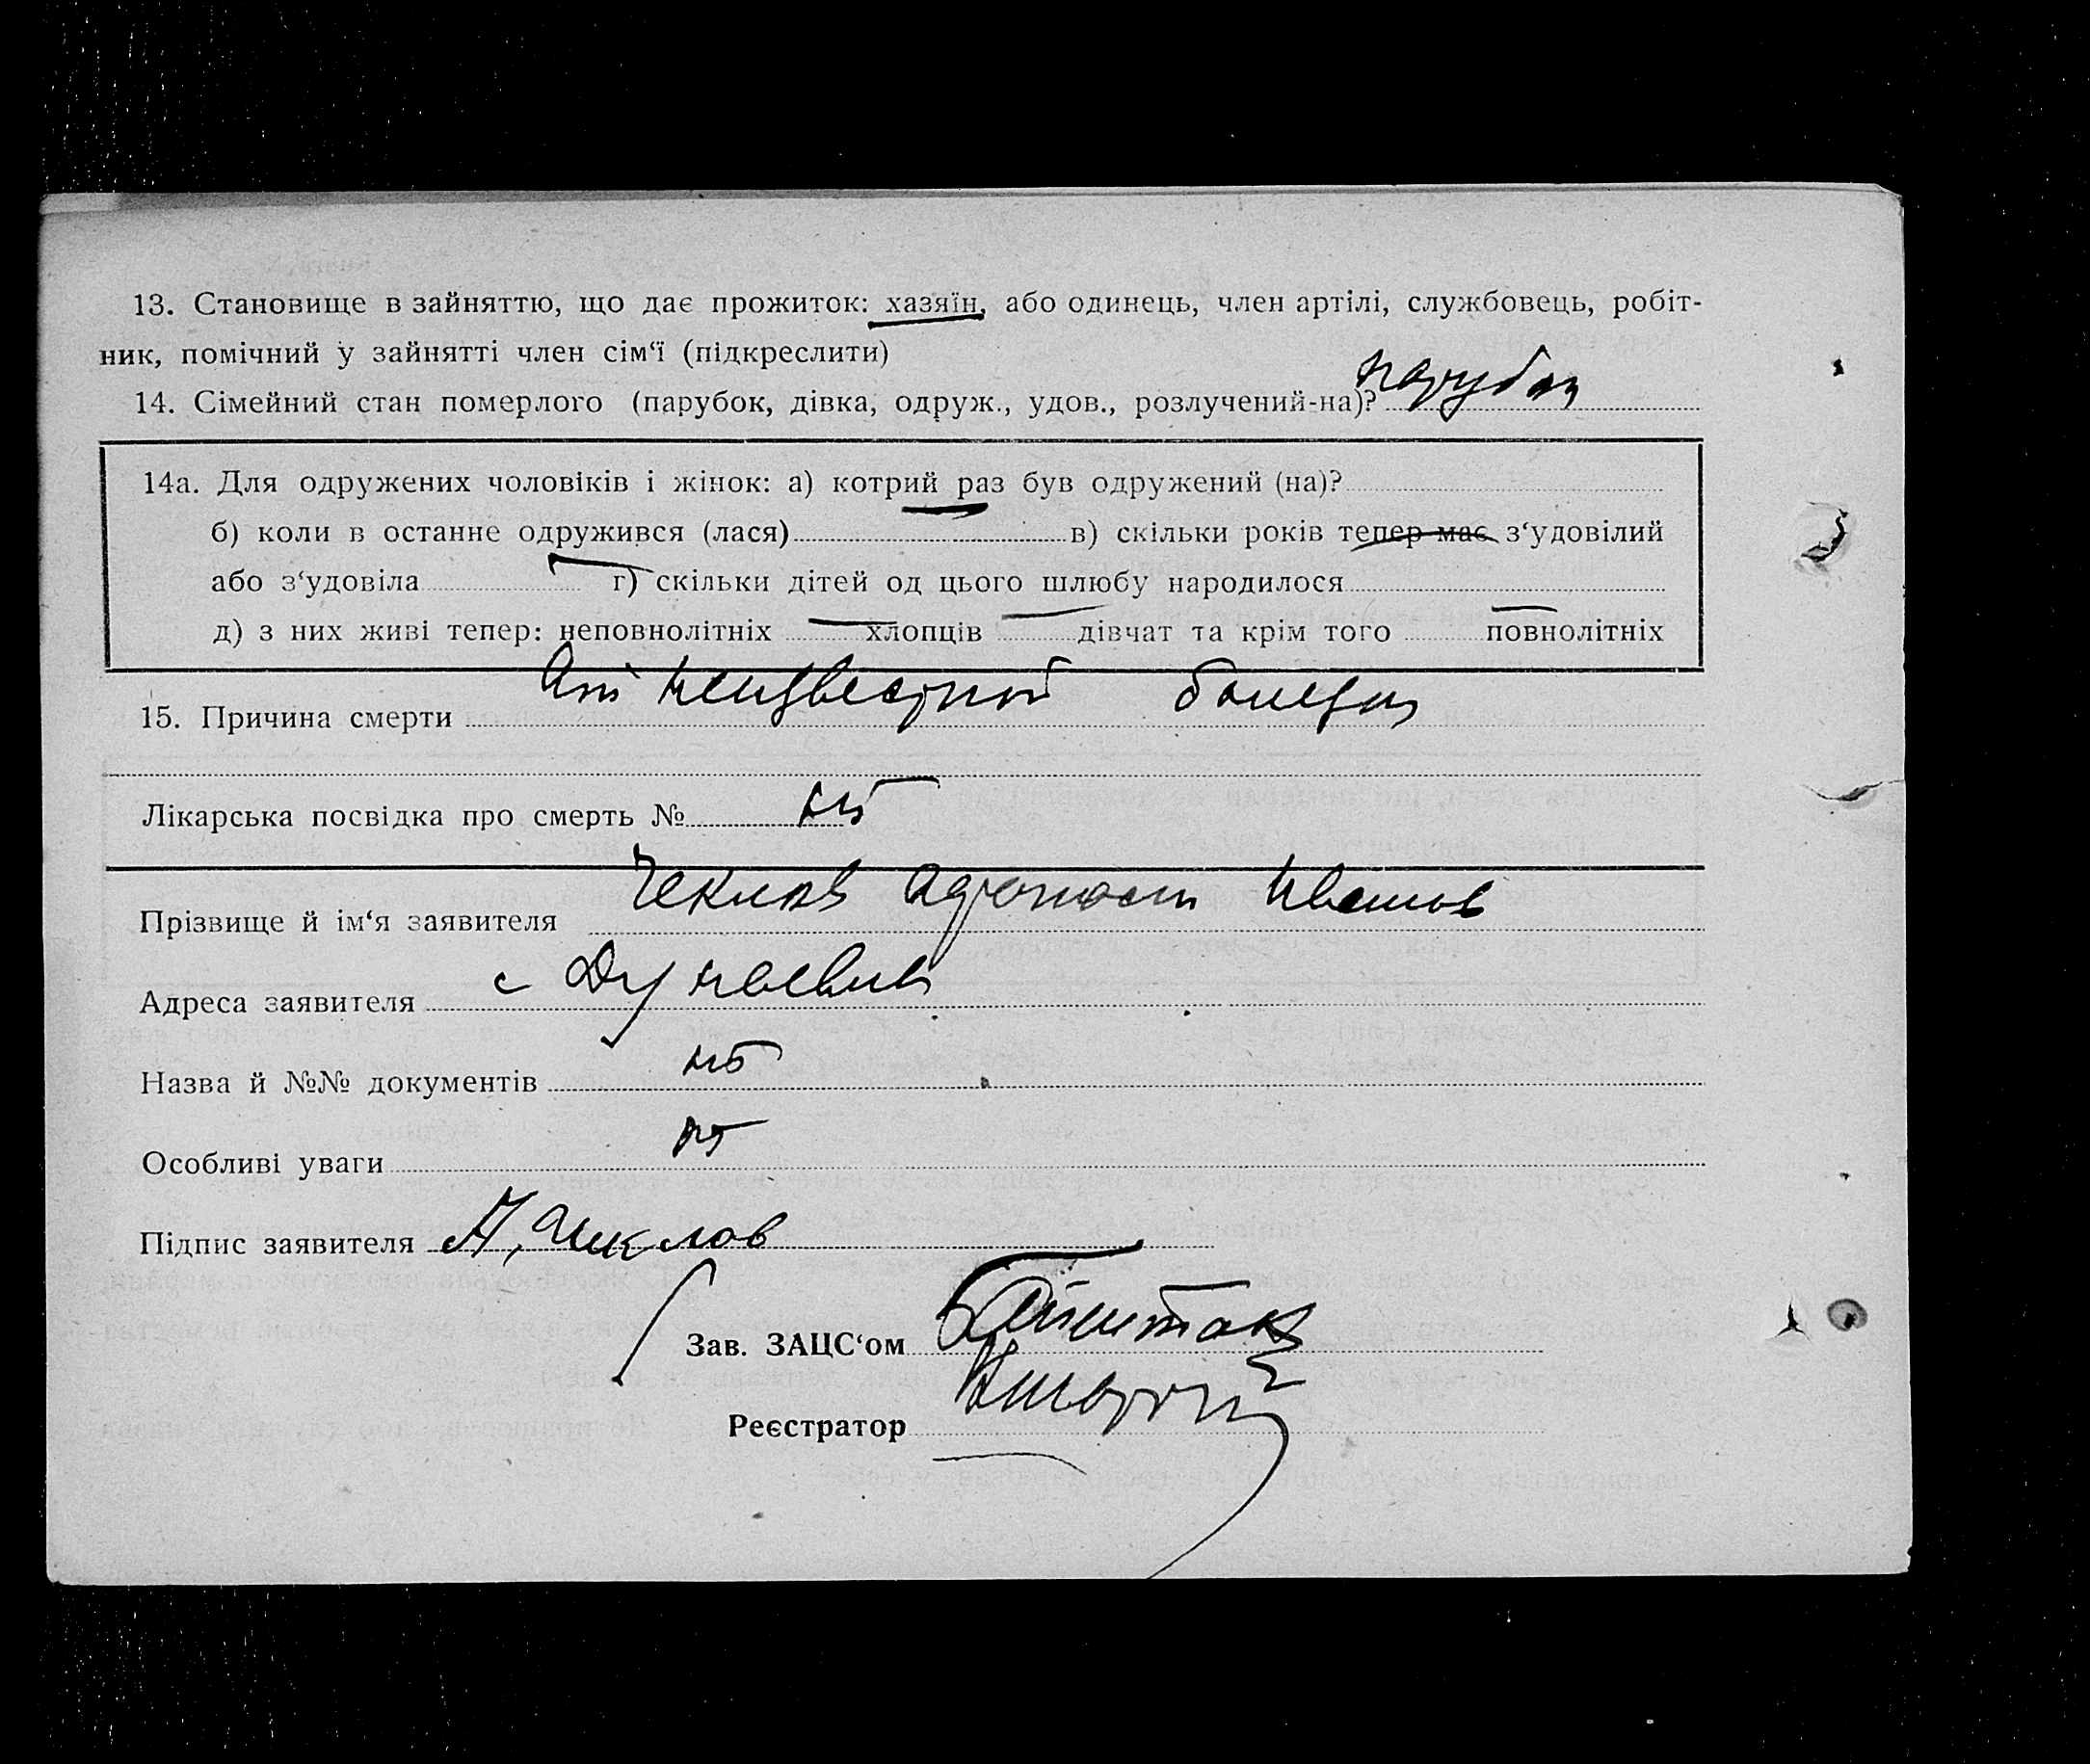 13. Становище в зайняттю, що дає прожиток: хазяїн, або одинець, член артілі, службовець, робіт-
ник, помічний у зайнятті член сім‘ї (підкреслити)
14. Сімейний стан померлого (парубок, дівка, одруж., удов., розлучений-на)? парубок
14а. Для одружених чоловіків і жінок: а) котрий раз був одружений (на)?
б) коли в останне одружився (лася) в) скільки років тепер має з‘удовілий
або з‘удовіла г) скільки дітей од цього шлюбу народилося
д) з них живі тепер: неповнолітніх хлопців дівчат та крім того повнолітніх
15. Причина смерти От неизвестной болезни
Лікарська посвідка про смерть № нет
Прізвище й ім‘я заявителя Чеклов Иванов
Адреса заявителя с
Назва й №№ документів нет
Особливі уваги нет
Підпис заявителя А, Чиклов
Зав. ЗАЦС‘ом
Реєстратор